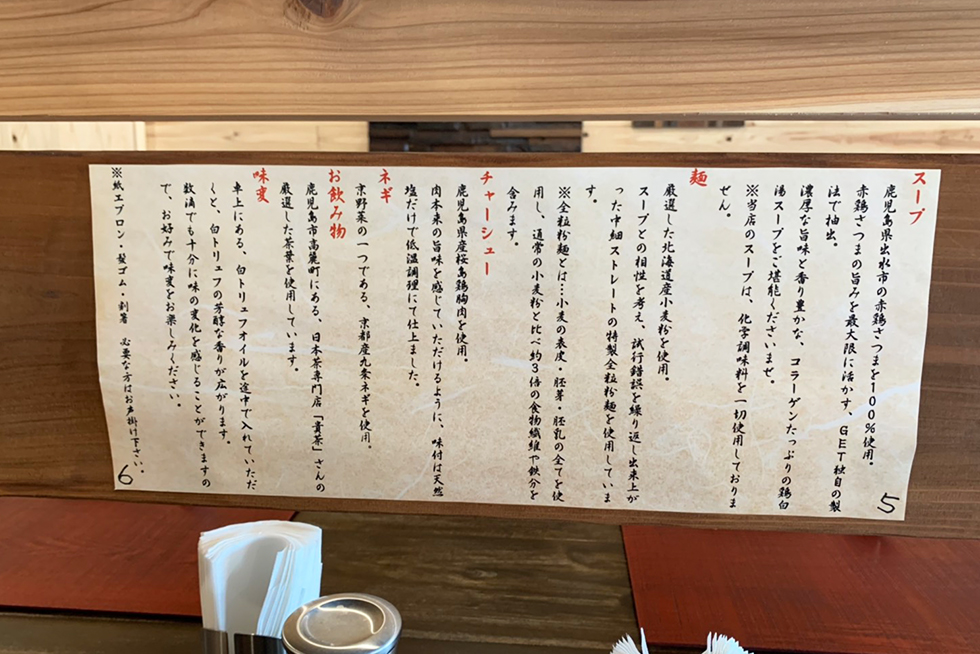 スープ
鹿児島県出水市の赤鶏さつまを100%使用。
赤鶏さつまの旨みを最大限に活かす、GET独自の製
法で抽出。
濃厚な旨味と香り豊かな、コラーゲンたっぷりの鶏白
湯スープをご堪能くださいませ。
※当店のスープは、化学調味料を一切使用しておりま
せん。
麺
厳選した北海道産小麦粉を使用。
スープとの相性を考え、試行錯誤を繰り返し出来上が
った中細ストレートの特製全粒粉麺を使用していま
す。
※全粒粉麺とは…小麦の表皮・胚芽・胚乳の全てを使
用し、通常の小麦粉と比べ約3倍の食物繊維や鉄分を
含みます。
チャーシュー
鹿児島県産桜島鶏胸肉を使用。
肉本来の旨味を感じていただけるように、味付は天然
塩だけで低温調理にて仕上ました。
ネギ
京野菜の一つである、京都産九条ネギを使用。
お飲み物
鹿児島市高麗町にある、日本茶専門店「貴茶」さんの
厳選した茶葉を使用しています。
味変
卓上にある、白トリュフオイルを途中で入れていただ
くと、白トリュフの芳醇な香りが広がります。
数滴でも十分に味の変化を感じることができますの
で、お好みで味変をお楽しみください。
※紙エプロン・髪ゴム・割箸 必要な方はお声掛け下さい。
5
6